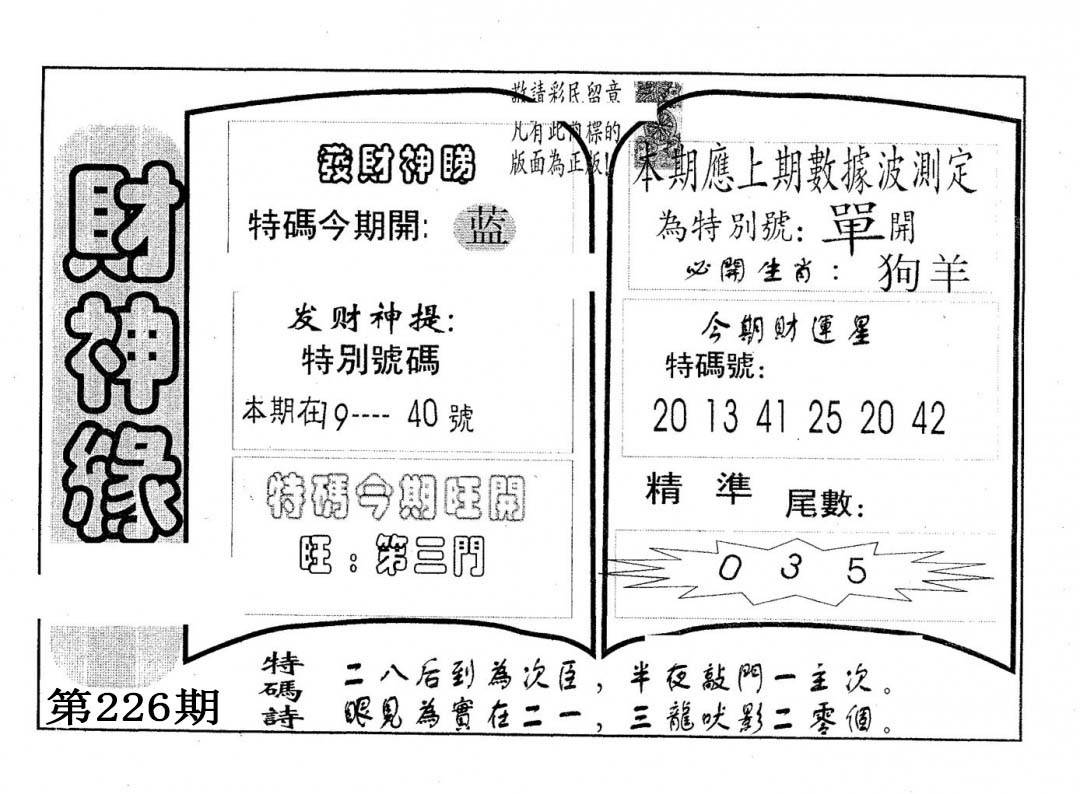 財神緣
第226期
敬請彩民留意
凡有此商標的
版面為正版!
發財神睇
特碼今期開: 蓝
发财神提:
特別號碼
本期在19---- 40號
特碼今期旺開
旺：第三門
本期應上期數據波測定
為特別號: 單開
必開生肖： 狗羊
今期財運星
特碼號:
20 13 41 25 20 42
精 準 尾數:
0 3 5
特碼詩
二八后到為次臣，半夜敲門一主次。
眼見為實在二一，三龍吠影二零個。